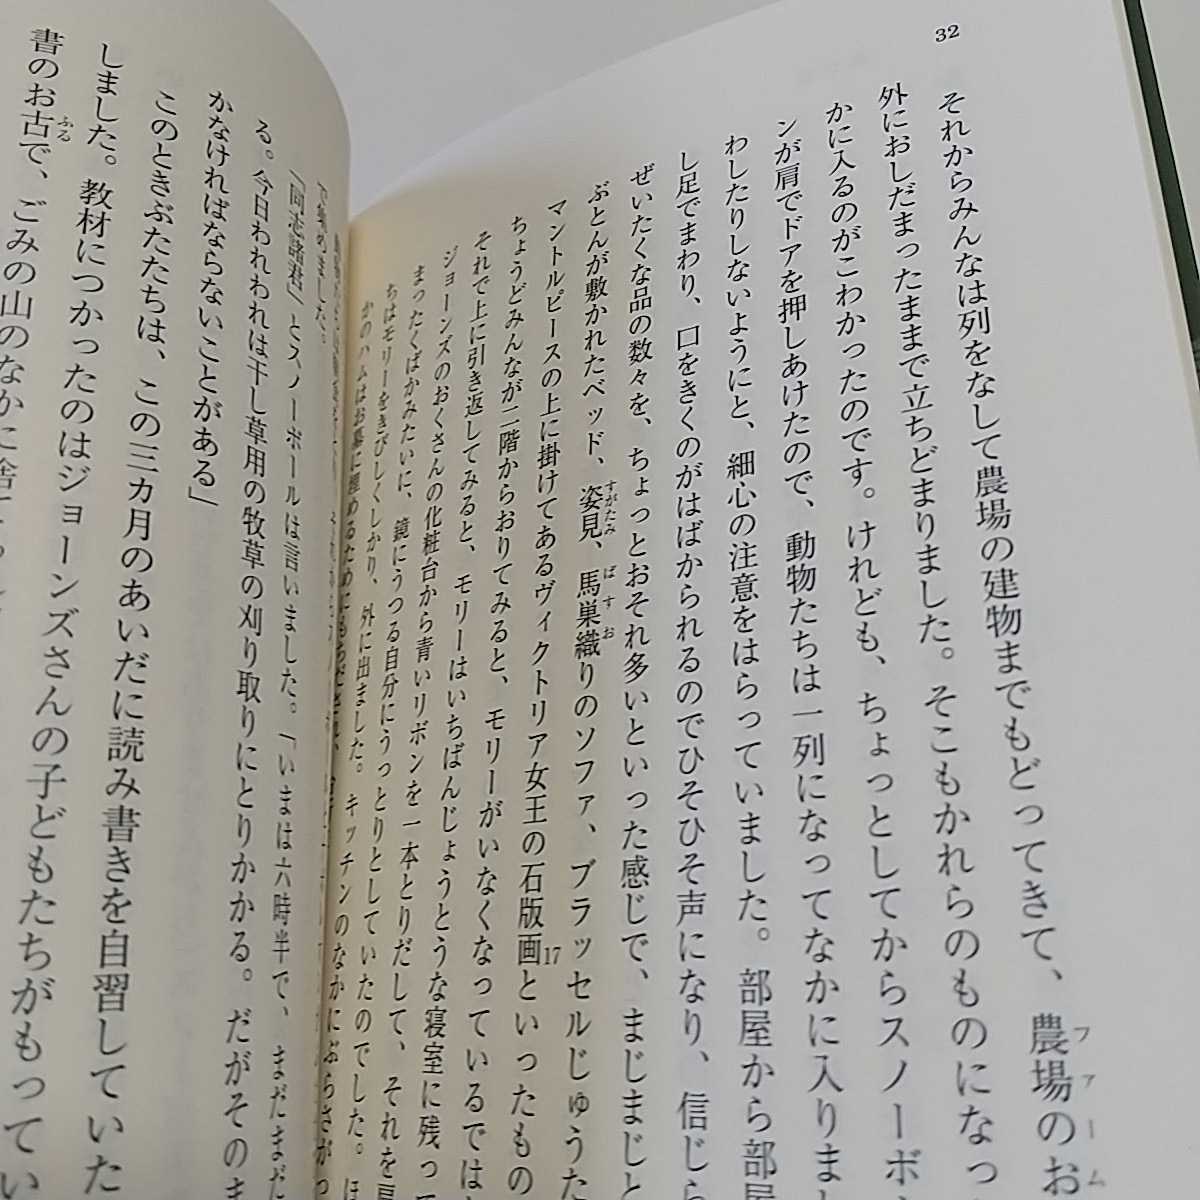 32
それからみんなは列をなして農場の建物までもどってきて、農場のお
ファーム
外におしだまったままで立ちどまりました。そこもかれらのものになっ
かに入るのがこわかったのです。けれども、ちょっとしてからスノーボ
ンが肩でドアを押しあけたので、動物たちは一列になってなかに入りま
わしたりしないようにと、細心の注意をはらっていました。部屋から部屋
し足でまわり、口をきくのがはばかられるのでひそひそ声になり、信じら
ぜいたくな品の数々を、ちょっとおそれ多いといった感じで、まじまじと
ぶとんが敷かれたベッド、姿見、馬巣織りのソファ、ブラッセルじゅうた
すがたみ ばすお
マントルピースの上に掛けてあるヴィクトリア女王の石版画17といったもの
ちょうどみんなが二階からおりてみると、モリーがいなくなっているでは
それで上に引き返してみると、モリーはいちばんじょうとうな寝室に残って
ジョーンズのおくさんの化粧台から青いリボンを一本とりだして、それを肩
まったくばかみたいに、鏡にうつる自分にうっとりとしていたのでした。ほ
ちはモリーをきびしくしかり、外に出ました。キッチンのなかにぶらさがっ
かのハムはお墓に埋めるためにもちだされ、
で集めました。
「同志諸君」とスノーボールは言いました。「いまは六時半で、まだまだ
る。今日われわれは干し草用の牧草の刈り取りにとりかかる。だがそのま
かなければならないことがある」
このときぶたたちは、この三カ月のあいだに読み書きを自習していた
しました。教材につかったのはジョーンズさんの子どもたちがもってい
書のお古で、ごみの山のなかに捨
ふる